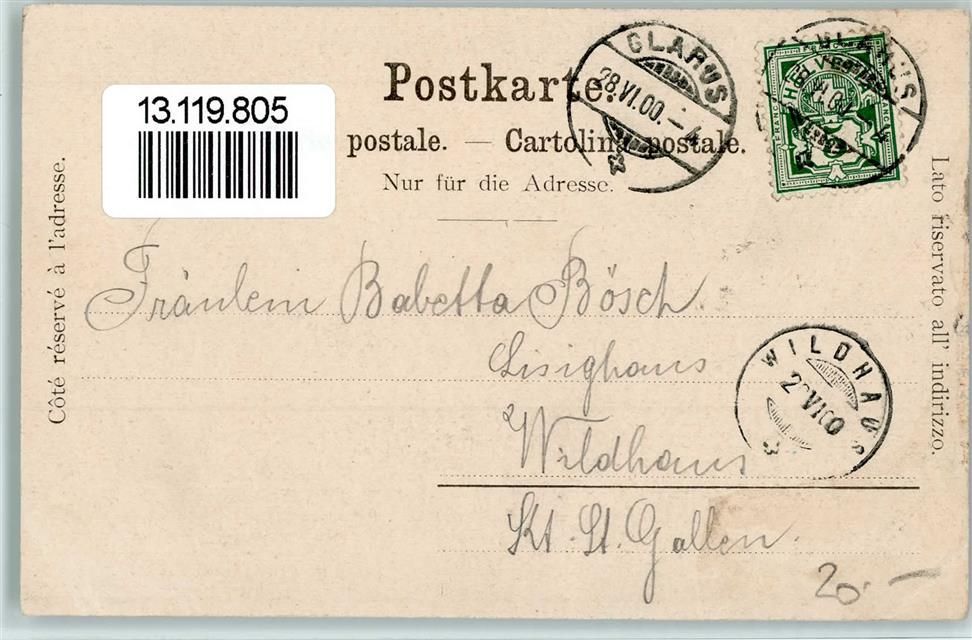 13.119.805
Postkarte.
postale. — Cartolina postale.
Nur für die Adresse.
Côté réservé à l'adresse.
Lato riservato all' indirizzo.
GLARUS
28.VI.00.-4
HELVETIA
FRANCO
Fräulein Babetta Bösch.
Lisighaus
Wildhaus
Kt. St. Gallen.
WILDHAUS
VI 00
20.-